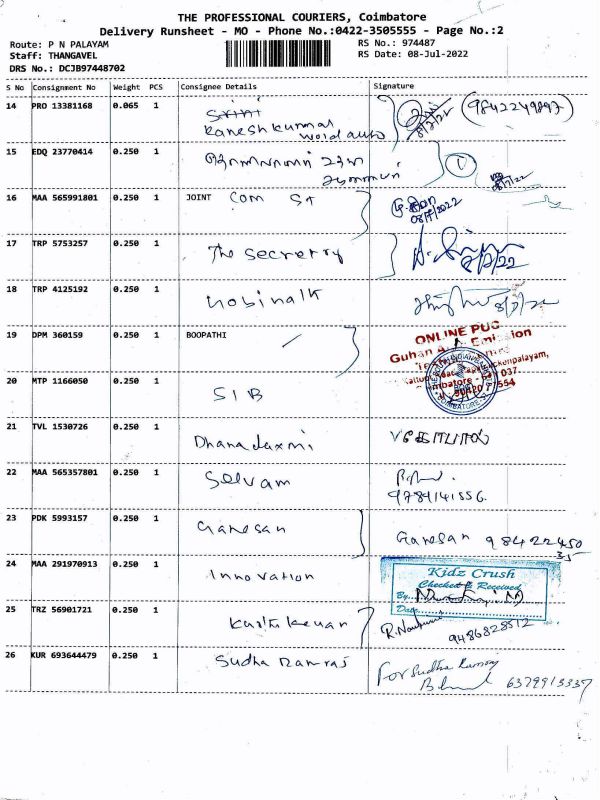 THE PROFESSIONAL COURIERS, Coimbatore
Delivery Runsheet - MO - Phone No.:0422-3505555 - Page No.:2
Route: P N PALAYAM
RS No.: 974487
Staff: THANGAVEL
RS Date: 08-Jul-2022
DRS No.: DCJB97448702
S No Consignment No Weight PCS Consignee Details Signature
14 PRO 13381168 0.065 1 (9842249897)
15 EDQ 23770414 0.250 1
16 MAA 565991801 0.250 1 JOINT COM ST
08/7/2022
17 TRP 5753257 0.250 1 The Secretrry
8/7/22
18 TRP 4125192 0.250 1 8/7/22
19 DPM 360159 0.250 1 BOOPATHI
ONLINE PUC
Guhan Emission
20 MTP 1166050 0.250 1 SIB
COIMBATORE
21 TVL 1530726 0.250 1 Dhanalaxmi
22 MAA 565357801 0.250 1 Selvam
9789141556
23 PDK 5993157 0.250 1 Ganesan Ganesan 98422450
35
24 MAA 291970913 0.250 1 Innovation
Kidz Crush
Checked & Received
By
Date
25 TRZ 56901721 0.250 1
9486828512
26 KUR 693644479 0.250 1 Sudha Ramraj For Sudha
6379913337